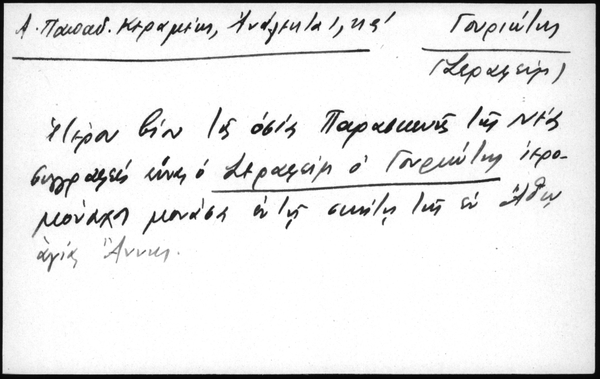 Α. Παπαδ. Κεραμέως, Ἀνάλεκτα Ι, κε'
Γουριώτης
(Σεραφείμ)
Ἕτερον βίον τῆς ὁσίας Παρασκευῆς τῆς νέας
συγγραφεὺς εἶναι ὁ Σεραφεὶμ ὁ Γουριώτης ἱερο-
μονάχου ἐν τῇ σκήτῃ τῆς ἐν Ἄθῳ
ἁγίας Ἄννης.